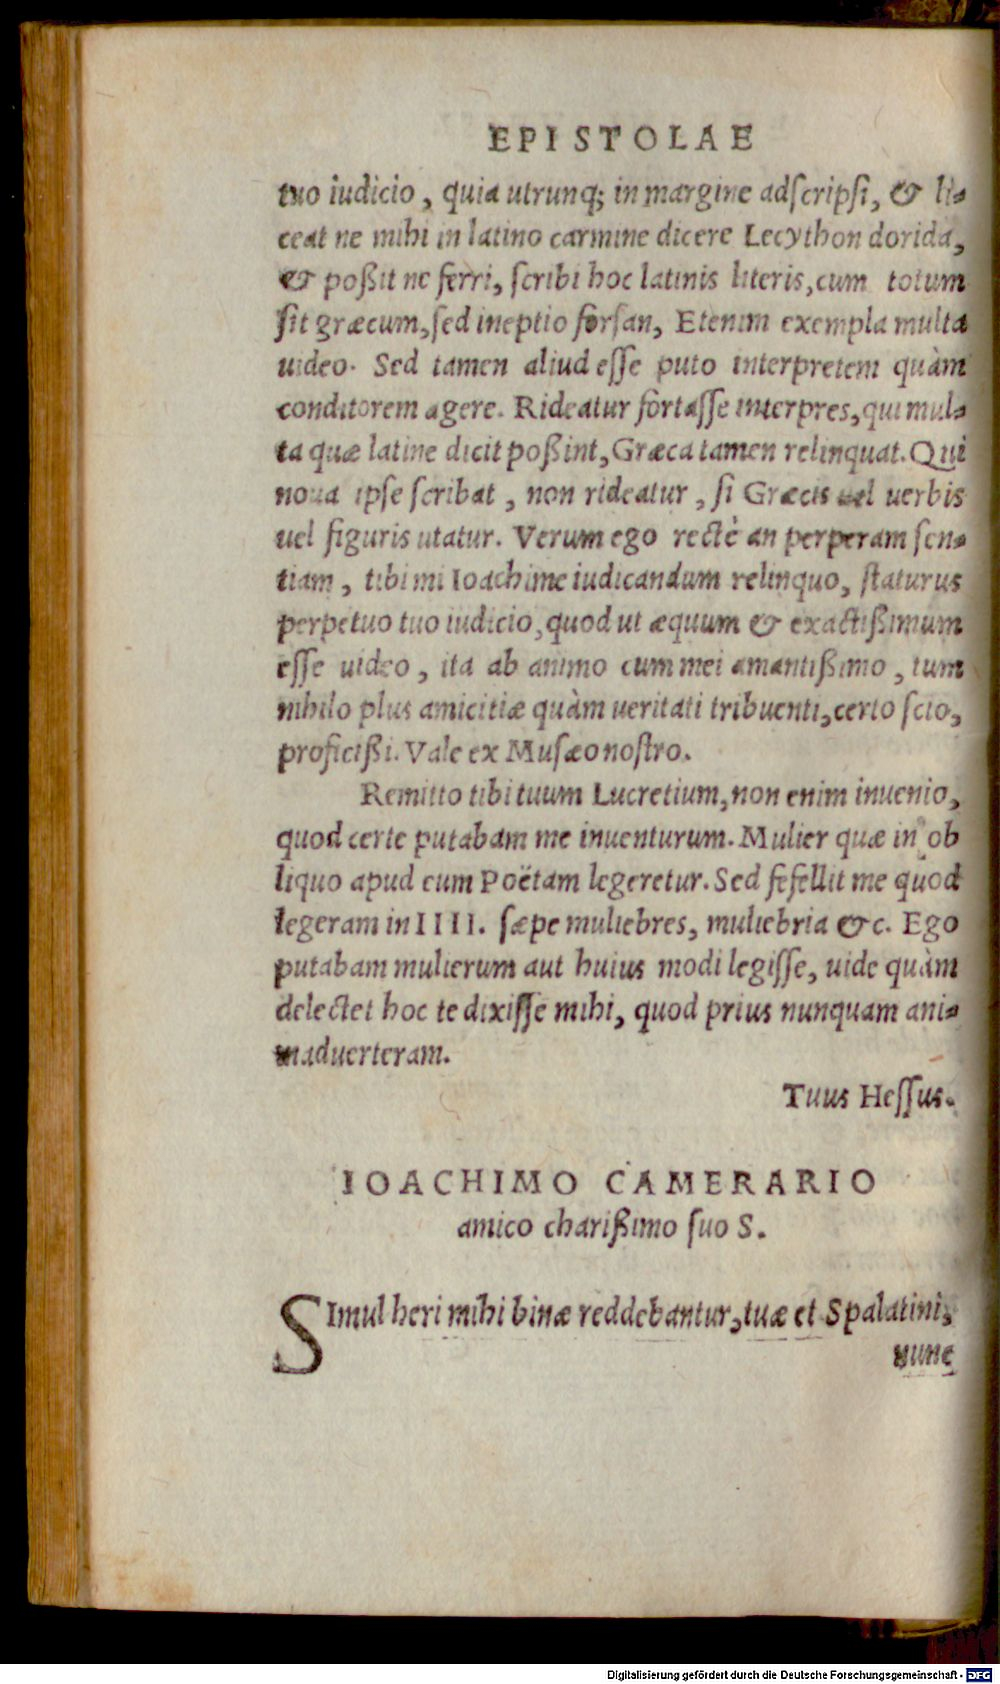 EPISTOLAE
tuo iudicio, quia utrunq; in margine adscripsi, & li-
ceat ne mihi in latino carmine dicere Lecython dorida,
& poßit ne ferri, scribi hoc latinis literis, cum totum
sit græcum, sed ineptio forsan, Etenim exempla multa
uideo. Sed tamen aliud esse puto interpretem quàm
conditorem agere. Rideatur fortasse interpres, qui mul-
ta quæ latine dicit poßint, Græca tamen relinquat. Qui
noua ipse scribat, non rideatur, si Græcis uel uerbis
uel figuris utatur. Verum ego rectè an perperam sen-
tiam, tibi mi Ioachime iudicandum relinquo, staturus
perpetuo tuo iudicio, quod ut æquum & exactißimum
esse uideo, ita ab animo cum mei amantißimo, tum
nihilo plus amicitiæ quàm ueritati tribuenti, certo scio,
proficißi. Vale ex Musæo nostro.
Remitto tibi tuum Lucretium, non enim inuenio,
quod certe putabam me inuenturum. Mulier quæ in ob
liquo apud eum Poëtam legeretur. Sed fefellit me quod
legeram in IIII. sæpe muliebres, muliebria &c. Ego
putabam mulierum aut huius modi legisse, uide quàm
delectet hoc te dixisse mihi, quod prius nunquam ani-
maduerteram.
Tuus Hessus.
IOACHIMO CAMERARIO
amico charißimo suo S.
SImul heri mihi binæ reddebantur, tuæ et Spalatini,
nunc
Digitalisierung gefördert durch die Deutsche Forschungsgemeinschaft - DFG